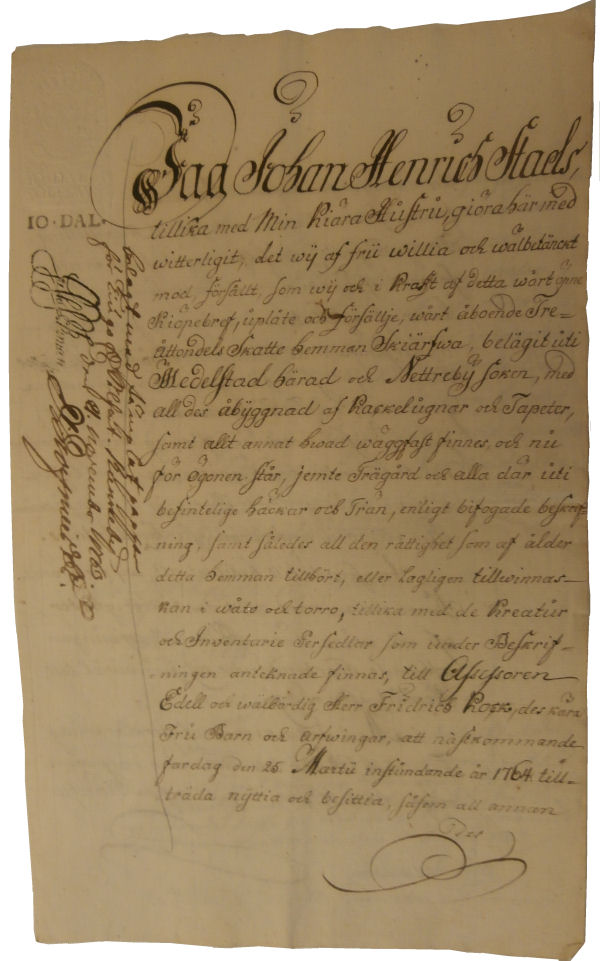 Jag Johan Henrich Staels,
tillika med Min Kiära Hustru, giöra här med
witterligit, det wÿ af frii willia och wälbetänckt
mod, försällt, som wÿ och i Kraft af detta wårt öpne
Kiöpebref, upläte och försällje, wårt åboende Tre-
åttondels Skatte hemman Skiärfwa, belägit uti
Medelstad härad och Nettrebÿ Soken, med
all des åbyggnad af Kackelugnar och Tapeter,
samt allt annat hwad wäggfast finnes, och nu
för ögonen står, jemte Trägård och alla där uti
befintelige häckar och Trän, enligt bifogade beskrif-
ning, samt således all den rättighet som af ålder
detta hemman tillhört, eller lagligen tillwinnas
kan i wåto och torro, tillika med de Kreatur
och Inventarie Persedlar som under Beskrif-
ningen anteknade finnas, till Assessoren
Edell och wälbördig Herr Fridrich Kock, des kära
Fru Barn och Arfwingar, att nästkommande
fardag den 25 Martii instundande år 1764 till-
träda nyttia och besittia, såsom all annan
Des
10·DAL.
belagt med
för
den 9. November 1765.